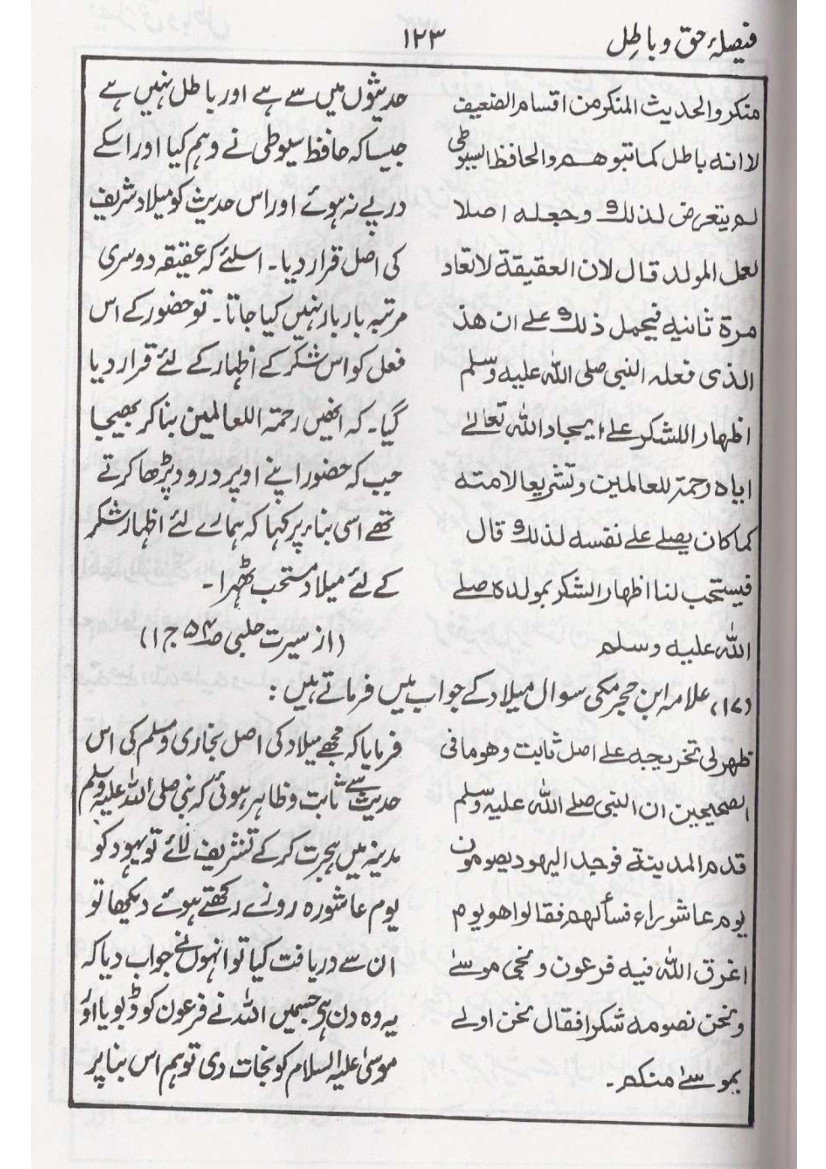 فیصلۂ حق و باطل
۱۲۳
منکر والحدیث المنکر من اقسام الضعیف
لا انہ باطل کما تبوھم والحافظ السیوطی
لم یتعرض لذلک وجعلہ اصلا
لعمل المولد قال لان العقیقة لا تعاد
مرة ثانیه فیحمل ذلک علی ان ھذ
الذی فعله النبی صلی اللہ علیہ وسلم
اظھار اللشکر علی ایجاد اللہ تعالےٰ
ایاہ رحمۃ للعالمین وتشریعا لامته
کما کان یصلے علی نفسه لذلک قال
فیستحب لنا اظھار الشکر بمولدہ صلے
اللہ علیہ وسلم
حدیثوں میں سے ہے اور باطل نہیں ہے
جیسا کہ حافظ سیلوطی نے وہم کیا اور اسکے
درپے نہ ہوئے اور اس حدیث کو میلاد شریف
کی اصل قرار دیا۔ اسلئے کہ عقیقہ دوسری
مرتبہ بار بار نہیں کیا جاتا۔ تو حضور کے اس
فعل کو اس شکر کے اظہار کے لئے قرار دیا
گیا۔ کہ انھیں رحمۃ اللعالمین بنا کر بھیجا
جب کہ حضور اپنے اوپر درود پڑھا کرتے
تھے اسی بناء پر کہا کہ ہمارے لئے اظہار شکر
کے لئے میلاد مستحب ٹھہرا۔
(از سیرت حلبی ص۵۴ ج ۱)
(۱۷) علامہ ابن حجر مکی سوال میلاد کے جواب میں فرماتے ہیں :
ظھر لی تخریجه علی اصل ثابت وھو مافی
الصحیحین ان النبی صلے اللہ علیہ وسلم
قدم المدینة فوجد الیھود یصومون
یوم عاشوراء فسألھم فقالوا ھو یوم
اغرق اللہ فیه فرعون ونجی موسےٰ
ونحن نصومه شکرا فقال نحن اولے
بموسےٰ منکم۔
فرمایا کہ مجھے میلاد کی اصل بخاری و مسلم کی اس
حدیث سے ثابت و ظاہر ہوئی کہ نبی صلی اللہ علیہ وسلم
مدینہ میں ہجرت کرکے تشریف لائے تو یہود کو
یوم عاشورہ روزے رکھتے ہوئے دیکھا تو
ان سے دریافت کیا تو انہوں نے جواب دیا کہ
یہ وہ دن ہے جسمیں اللہ نے فرعون کو ڈبویا اور
موسیٰ علیہ السلام کو نجات دی تو ہم اس بنا پر